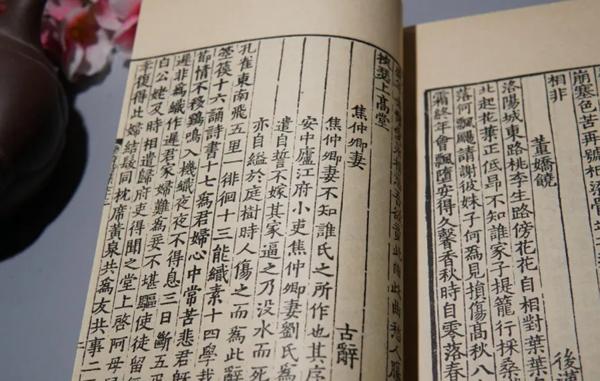 相非
董嬌饒
後漢
洛陽城東路桃李生路傍花花自相對葉葉
北起花葉正低昂不知誰家子提籠行採桑
落何飄颺請謝彼姝子何爲見損傷高秋八
霜終年會飄墮安得久馨香秋時自零落春
挾瑟上高堂
焦仲卿妻
古辭
焦仲卿妻不知誰氏之所作也其序
安中廬江府小吏焦仲卿妻劉氏爲
遣自誓不嫁其家逼之乃沒水而死
亦自縊於庭樹時人傷之而爲此辭
孔雀東南飛五里一徘徊十三能織素十四學裁
箜篌十六誦詩書十七爲君婦心中常苦悲君既
節情不移鷄鳴入機織夜夜不得息三日斷五
遲非爲織作遲君家婦難爲妾不堪驅使徒留
白公姥及時相遣歸府吏得聞之堂上啓阿母
幸復得此婦結髮同枕席黃泉共爲友共事二